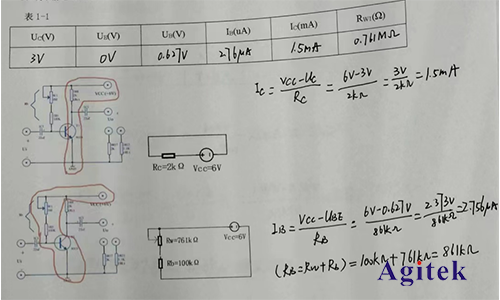 表 1-1
Uc(V) UE(V) UB(V) IB(uA) Ic(mA) RW1(Ω)
3V 0V 0.627V 2.76μA 1.5mA 0.761MΩ
Ic = Vcc-Uc / Rc = 6V-3V / 2kΩ = 3V / 2kΩ = 1.5mA
Rc=2k Ω Vcc=6V
Vcc=6V
Rw=761k Ω
Rb=100k Ω
IB = Vcc-UBE / RB = 6V-0.627V / 861kΩ = 2.373V / 861kΩ = 2.756μA
(RB=RW+Rb) = 100kΩ+761kΩ = 861kΩ
Agitek